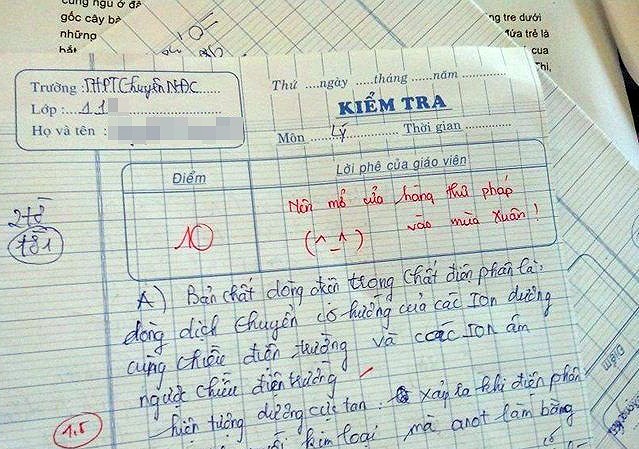 cung ngủ ở đề
gốc cây bà
những
ng tre dưới
đứa trẻ là
cua
Thi,
Trường : THPT Chuyên NĐC
Lớp : 11
Họ và tên :
Thứ ....ngày .....tháng ......năm
KIỂM TRA
Môn Lý Thời gian
Điểm
Lời phê của giáo viên
10
Nên mở cửa hàng thư pháp
vào mùa Xuân !
(^_^)
2+8
181
A) Bản chất dòng điện trong chất điện phân là :
dòng dịch chuyển có hướng của các Ion dương
cùng chiều điện trường và các ION âm
ngược chiều điện trường
1.5
hiện tượng dương cực tan : xảy ra khi điện phân
kim loại mà anot làm bằng
Điểm